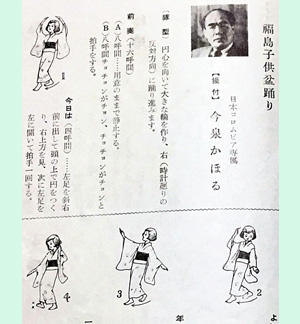 福島子供盆踊り
日本コロムビア専属
【振付】今泉かほる
〔隊型〕円心を向いて大きな輪を作り、右(時計廻りの
反対方向)に踊り進みます。
前奏(十六呼間)
(A)八呼間……用意のままで静止する。
(B)八呼間チョチョンがチョン、チョチョンがチョンと
拍手をする。
今日は(四呼間)……左足を斜右
前に出して頭の上で円をつく
り、右上方を見、次に左足を
左に開いて拍手一回する。
2
3
4
よ
年
一